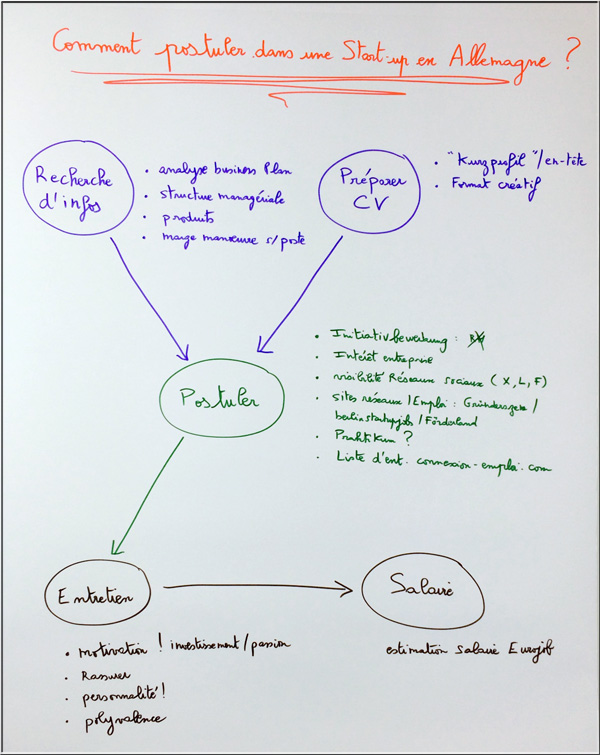 Comment postuler dans une Start-up en Allemagne ?
Recherche
d'infos
• analyse business Plan
• structure managériale
• produits
• marge manœuvre s/poste
Préparer
CV
• "Kurzprofil"/en-tête
• Format créatif
Postuler
• Initiativbewerbung :
• Intérêt entreprise
• visibilité Réseaux sociaux (X, L, F)
• sites réseaux / Emploi : Gründerszene /
berlinstartupjobs / Förderland
• Praktikum ?
• Liste d'ent. connexion-emploi.com
Entretien
• motivation ! investissement/passion
• Rassurer
• personnalité !
• polyvalence
Salaire
estimation salaire Eurojob